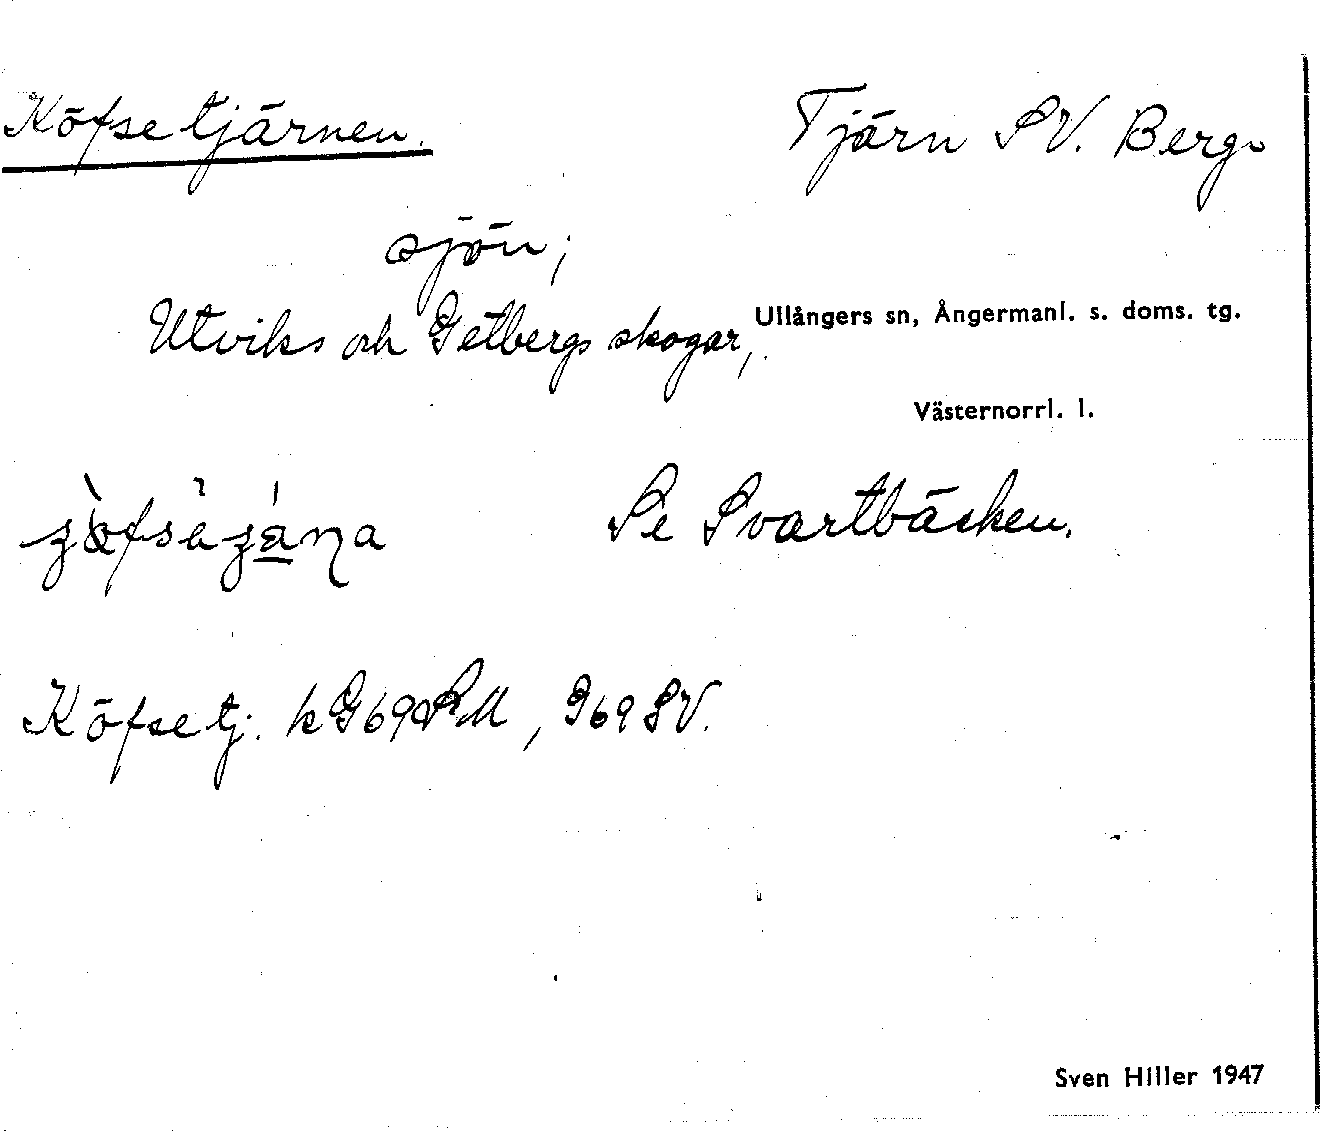 Köfsetjärnen. Tjärn SV. Berg-
sjön;
Utviks och Getbergs skogar, Ullångers sn, Ångermanl. s. doms. tg.
Västernorrl. l.
Se Svartbäcken.
Köfsetj. k G69 , G69 SV.
Sven Hiller 1947